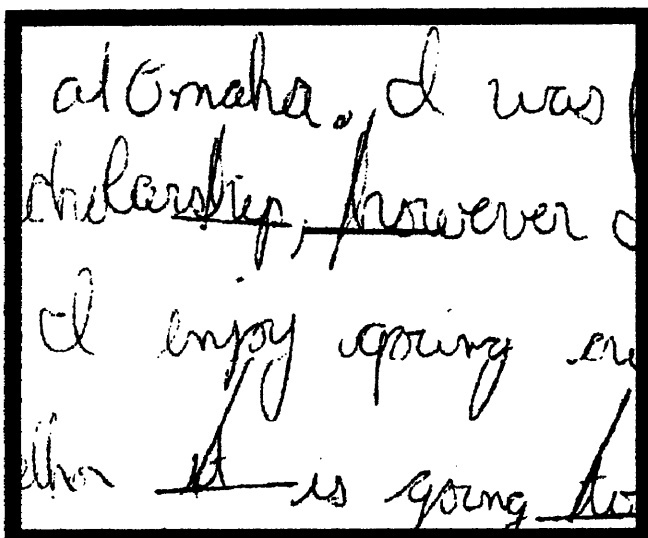 at Omaha. I was
cholarship, however I
I enjoy going on
ether it is going to